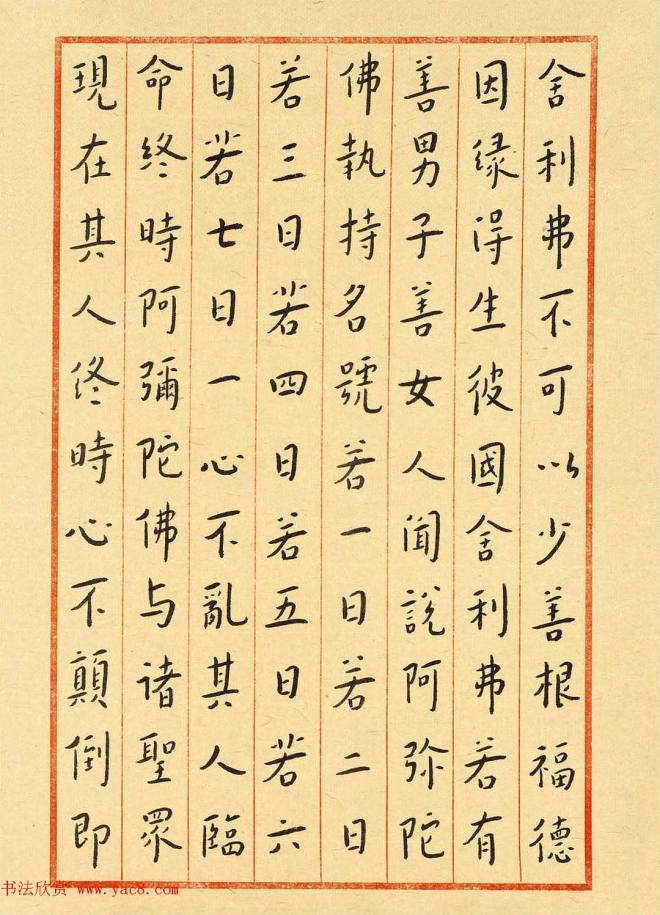 舍利弗不可以少善根福德
因缘得生彼國舍利弗若有
善男子善女人聞説阿弥陀
佛執持名號若一日若二日
若三日若四日若五日若六
日若七日一心不亂其人臨
命終時阿彌陀佛与诸聖眾
現在其人终時心不顛倒即
书法欣赏 www.yac8.com